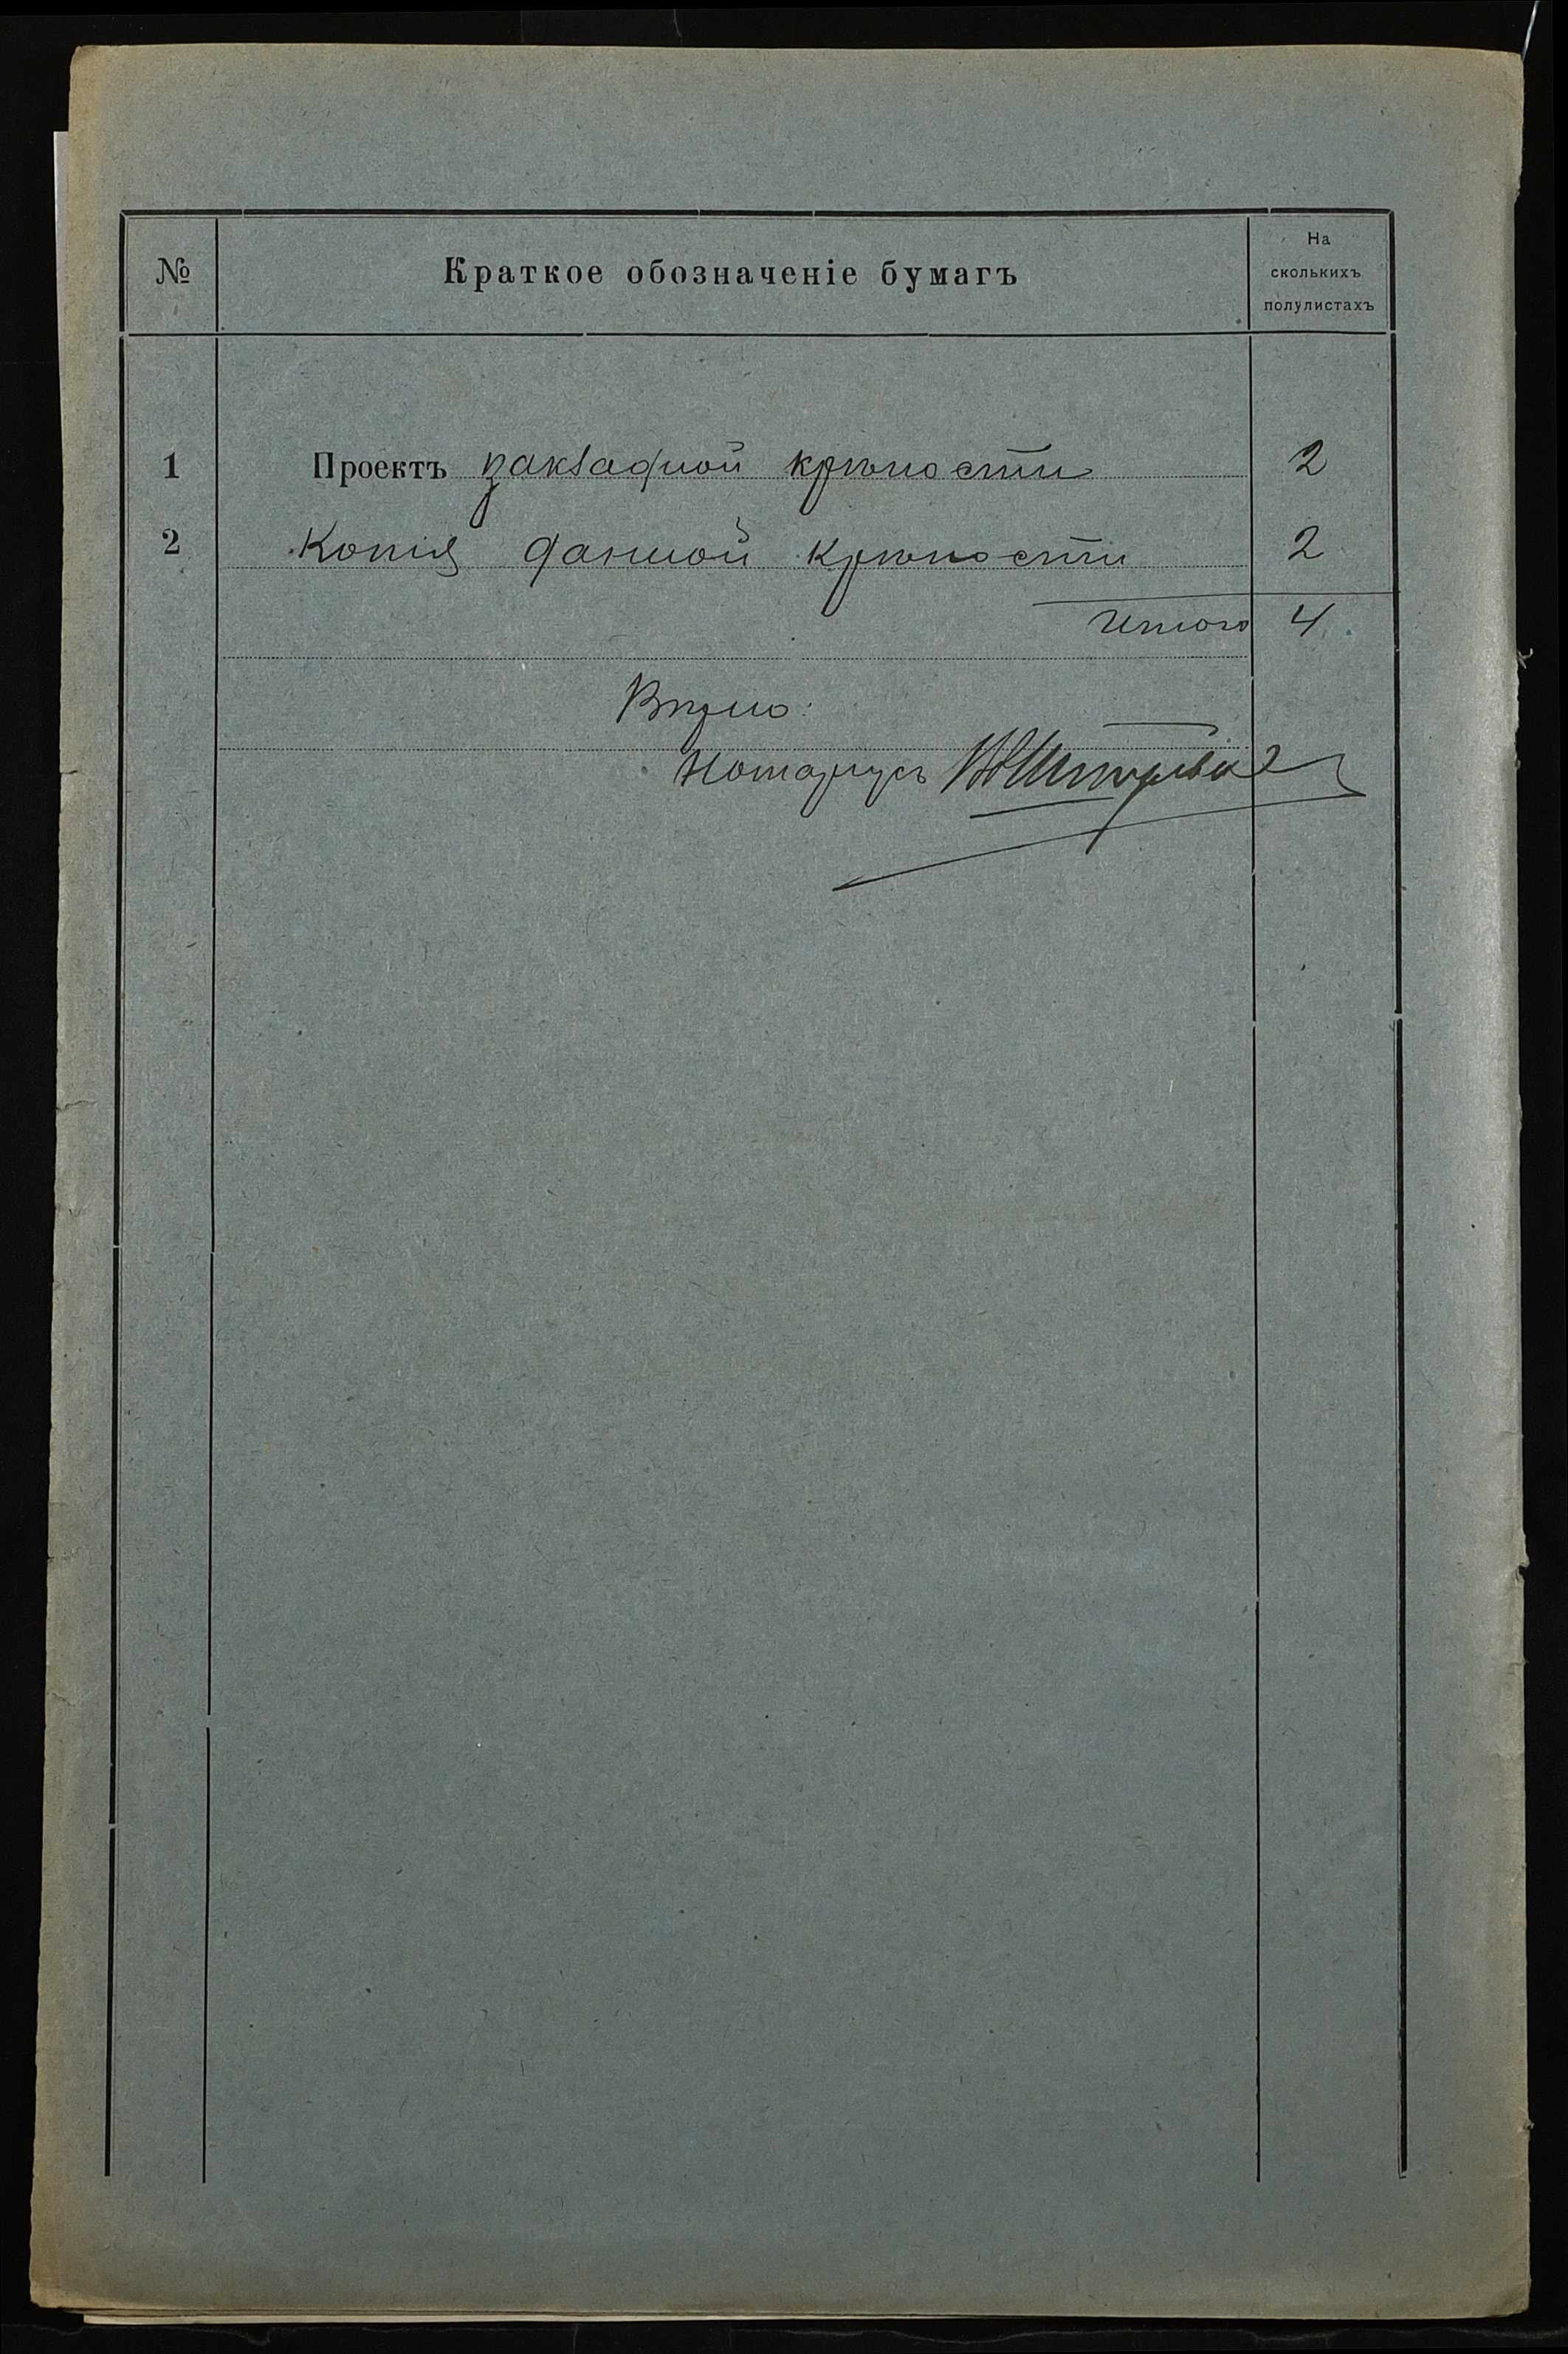 №
Краткое обозначеніе бумагъ
На
сколькихъ
полулистахъ
1 Проектъ закладной крѣпости 2
2 Копія данной крѣпости 2
Итого 4
Вѣрно:
Нотаріусъ